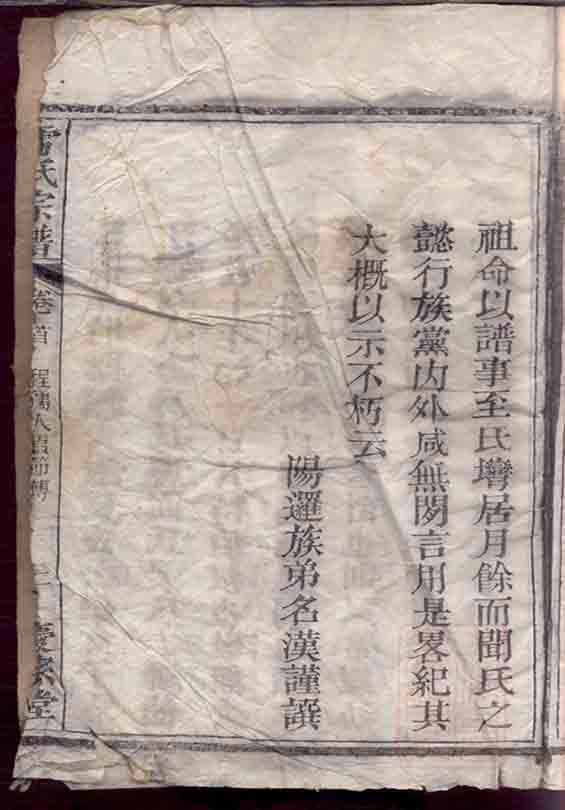 祖命以譜事至氏壪居月餘而聞氏之
懿行族黨內外咸無閒言用是畧紀其
大概以示不朽云
陽邏族弟名漢謹譔
氏宗譜 卷首 程孺人 節傳 堂